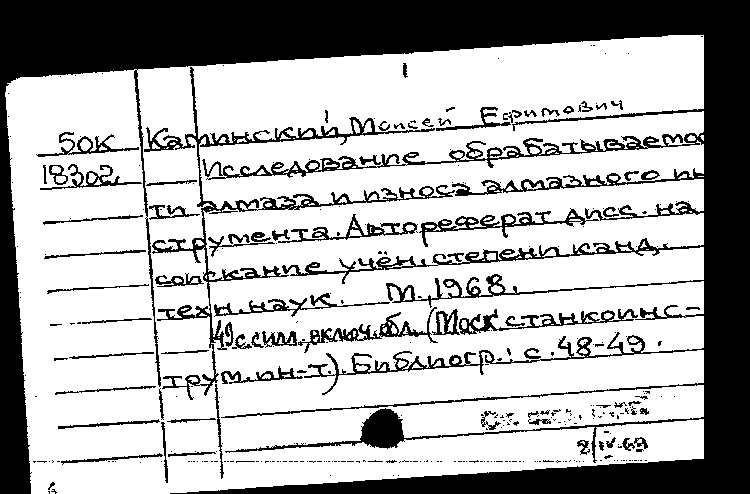 1
50К Каминский, Моисей Ефимович
18302. Исследование обрабатываемос
ти алмаза и износа алмазного ин
струмента. Автореферат дисс. на
соискание учён. степени канд.
техн. наук. М., 1968.
49с.силл., включ. обл. (Моск. станкоинс-
трум. ин-т). Библиогр.: с. 48-49.
8/IV-69